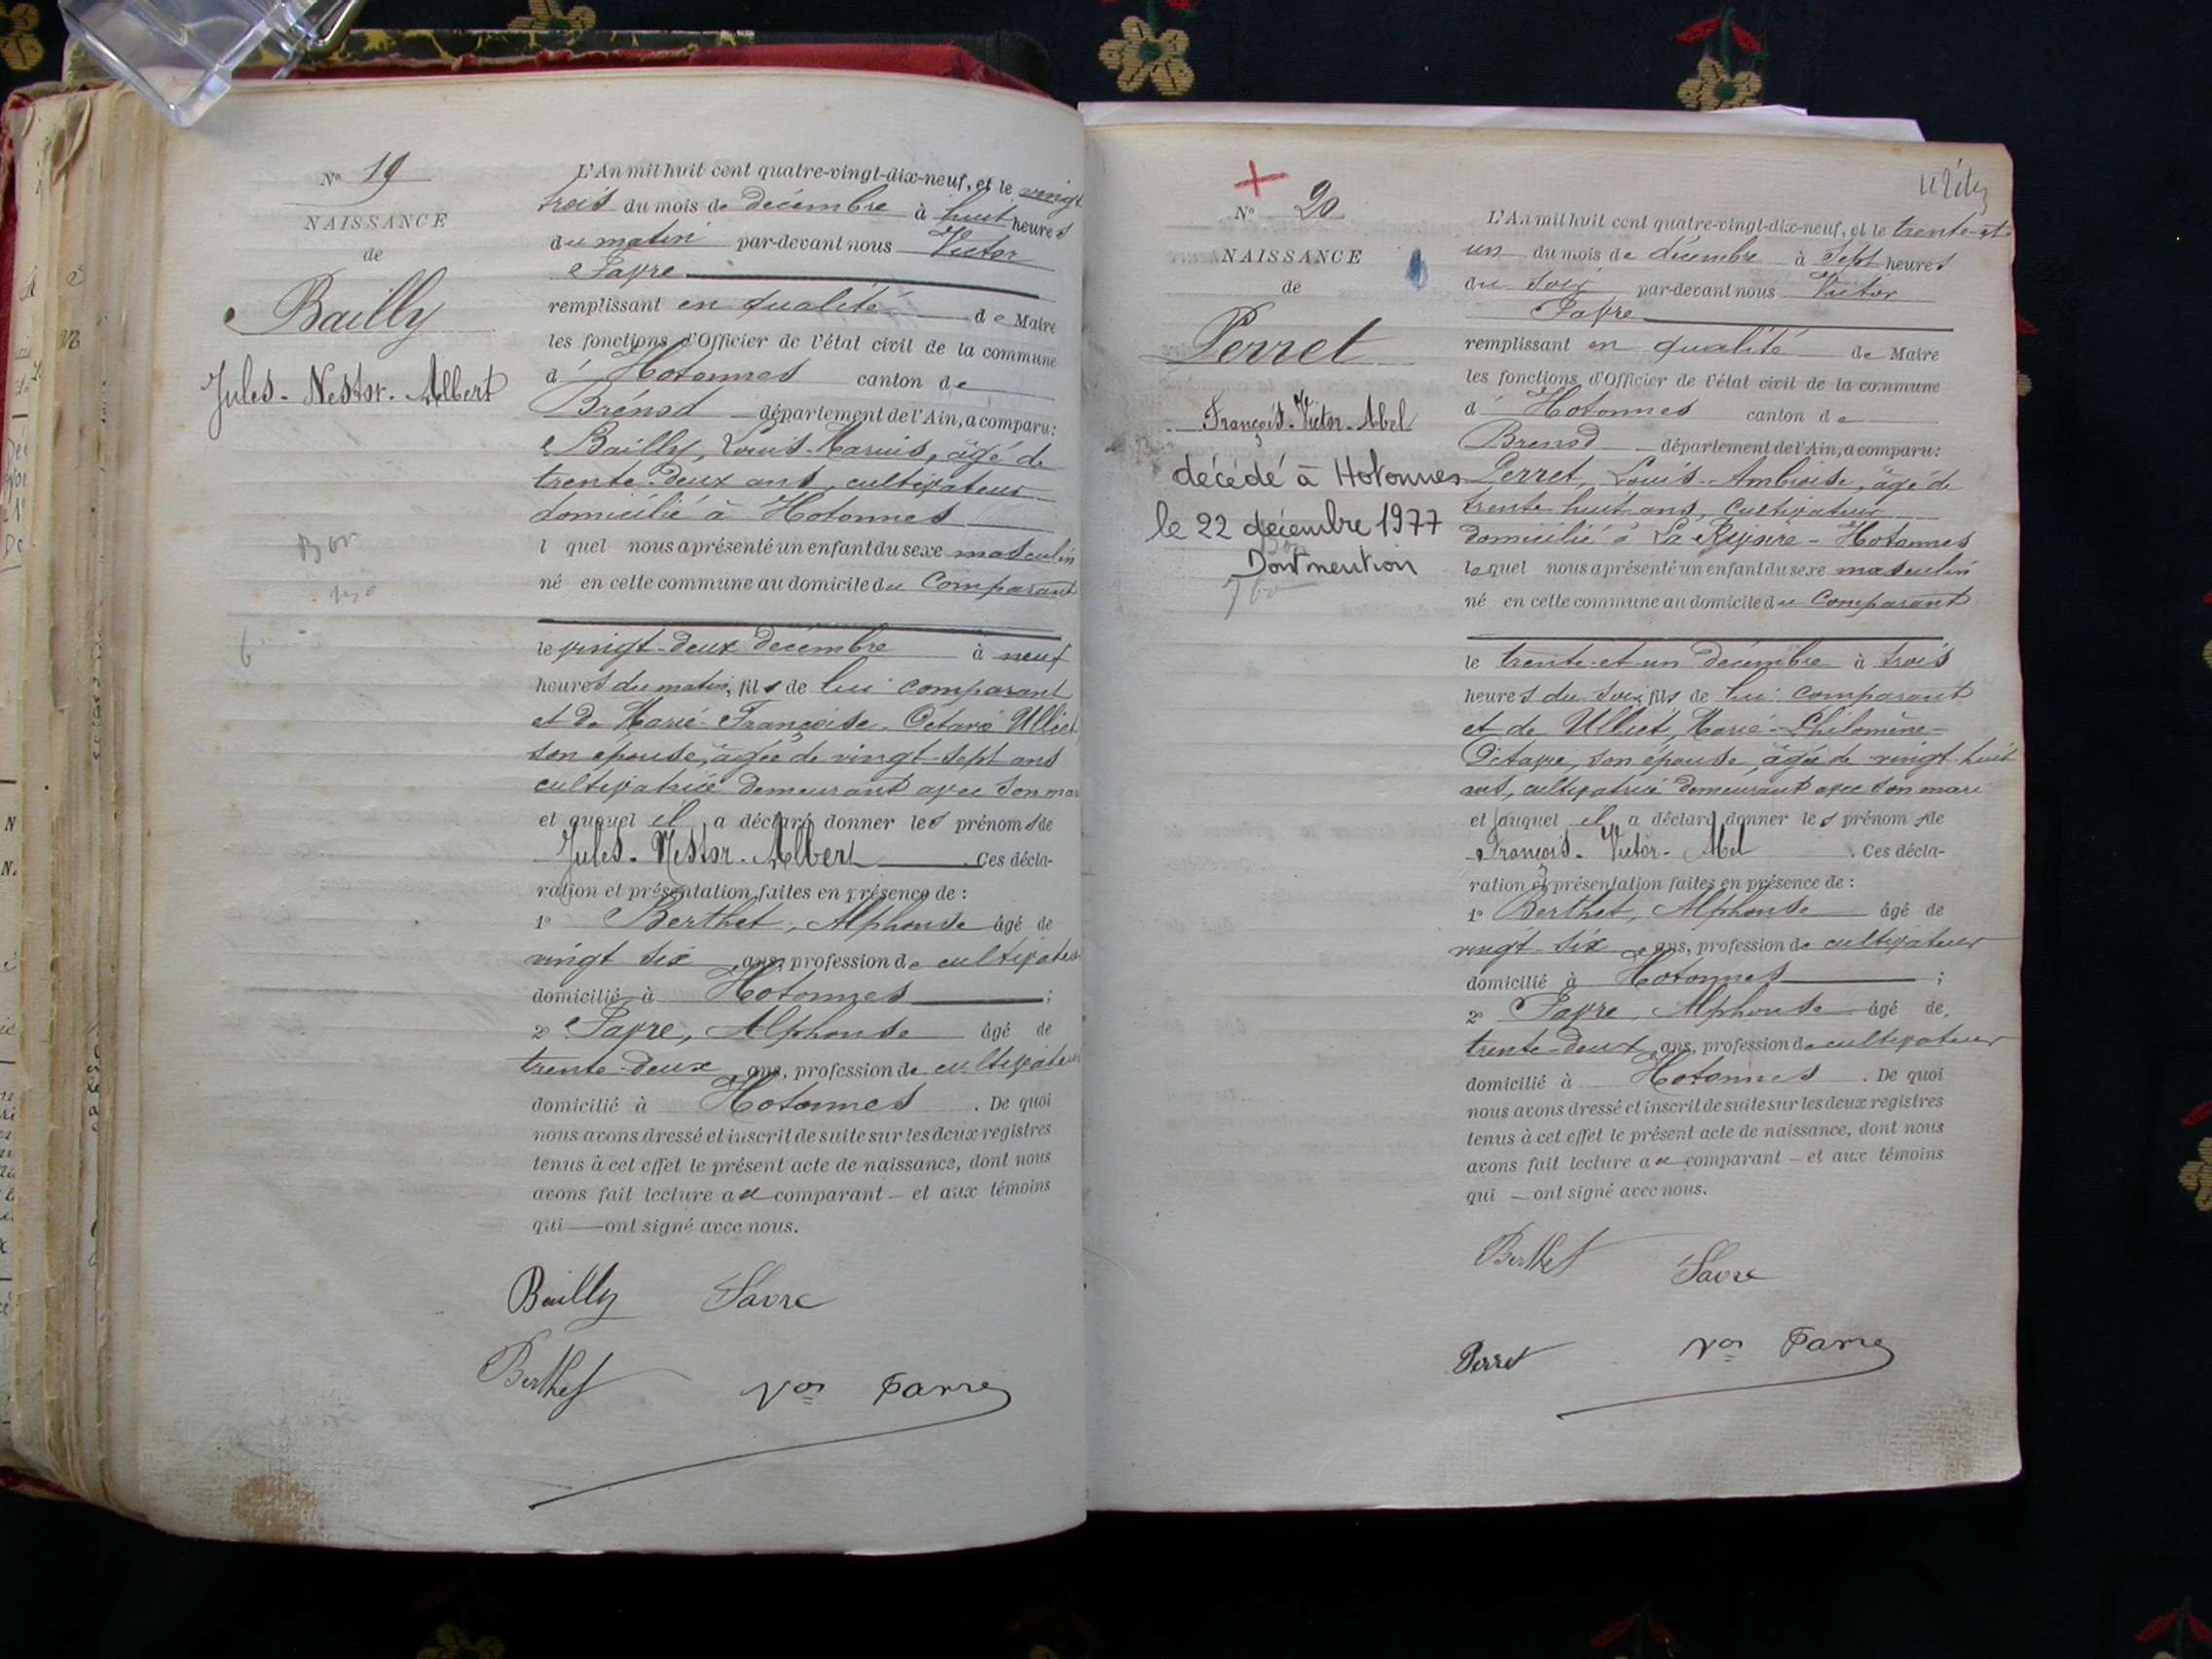 N° 19
NAISSANCE
de
Bailly
Jules-Nestor-Albert
Bon
L'An mil huit cent quatre-vingt-dix-neuf, et le vingt
trois du mois de décembre à huit heures
du matin par-devant nous Victor
Favre
remplissant en qualité de Maire
les fonctions d'Officier de l'état civil de la commune
d' Hotonnes canton de
Brénod département de l'Ain, a comparu:
Bailly, Louis-Marius, âgé de
trente-deux ans, cultivateur
domicilié à Hotonnes
l quel nous a présenté un enfant du sexe masculin
né en cette commune au domicile du Comparant
le vingt-deux décembre à neuf
heures du matin, fils de lui comparant
et de Marie-Françoise-Octavie Ulliet
son épouse, âgée de vingt-sept ans
cultivatrice demeurant avec son mari
et auquel il a déclaré donner les prénoms de
Jules-Nestor-Albert. Ces décla-
ration et présentation faites en présence de :
1° Berthet, Alphonse âgé de
vingt six ans, profession de cultivateur
domicilié à Hotonnes ;
2° Favre, Alphonse âgé de
trente-deux ans, profession de cultivateur
domicilié à Hotonnes. De quoi
nous avons dressé et inscrit de suite sur les deux registres
tenus à cet effet le présent acte de naissance, dont nous
avons fait lecture au comparant et aux témoins
qui ont signé avec nous.
Bailly Favre
Berthet Vor Favre
N° 20
NAISSANCE
de
Perret
François-Victor-Abel
décédé à Hotonnes
le 22 décembre 1977
Dont mention
L'An mil huit cent quatre-vingt-dix-neuf, et le trente-et-
un du mois de décembre à Sept heures
du soir par-devant nous Victor
Favre
remplissant en qualité de Maire
les fonctions d'Officier de l'état civil de la commune
d' Hotonnes canton de
Brenod département de l'Ain, a comparu:
Perret, Louis-Ambroise, âgé de
trente-huit ans, Cultivateur
domicilié à La Rivoire-Hotonnes
lequel nous a présenté un enfant du sexe masculin
né en cette commune au domicile du Comparant
le trente-et-un décembre à trois
heures du soir, fils de lui comparant
et de Ulliet, Marie-Philomène-
Octavie, son épouse, âgée de vingt-huit
ans, cultivatrice demeurant avec son mari
et auquel il a déclaré donner les prénoms de
François-Victor-Abel. Ces décla-
ration et présentation faites en présence de :
1° Berthet, Alphonse âgé de
vingt-six ans, profession de cultivateur
domicilié à Hotonnes ;
2° Favre, Alphonse âgé de
trente-deux ans, profession de cultivateur
domicilié à Hotonnes. De quoi
nous avons dressé et inscrit de suite sur les deux registres
tenus à cet effet le présent acte de naissance, dont nous
avons fait lecture au comparant et aux témoins
qui ont signé avec nous.
Berthet Favre
Perret Vor Favre